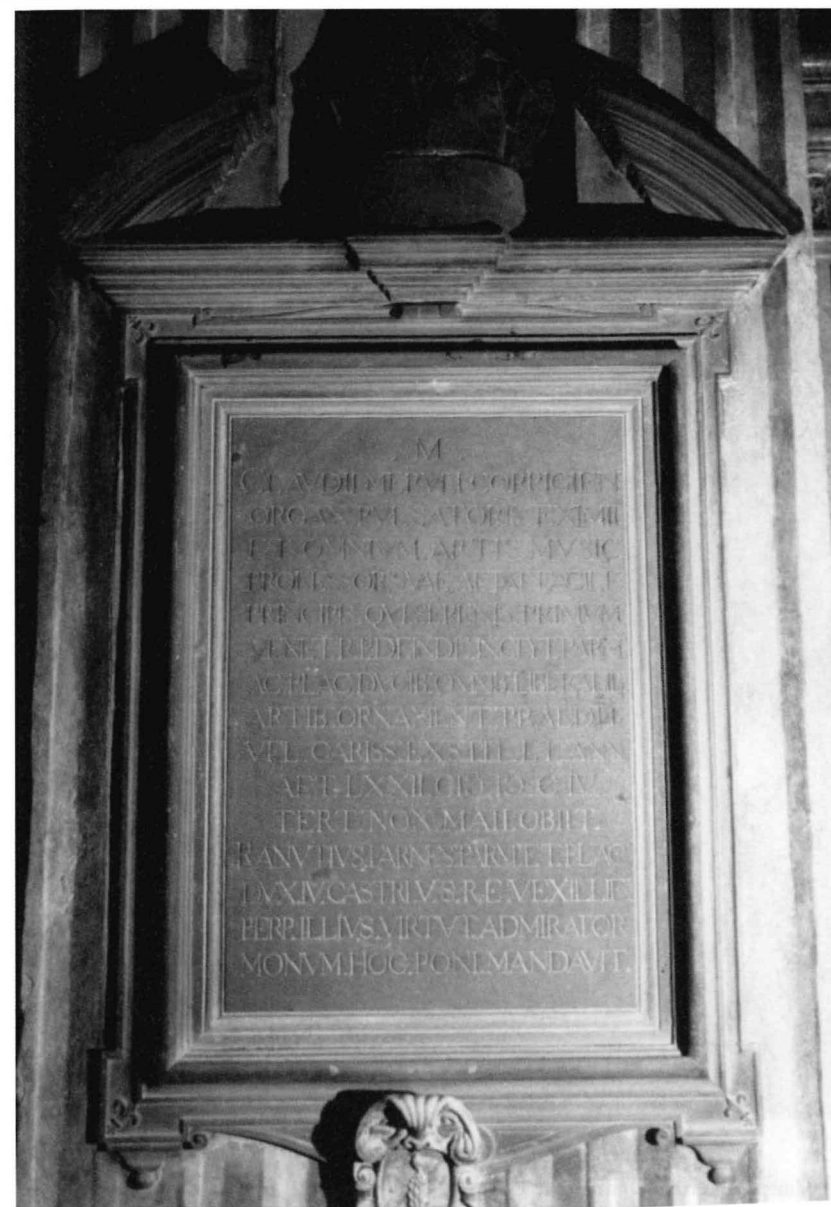 . M .
CLAVDII MERVLI CORRIGIEN
ORGAN. PVLSATORIS EXIMII
ET OMNIVM ARTIS MVSIC
PROFESSOR SVAE AETAT FACILE
PRINCIPIS QVI SER PRIMVM
VENET REIP DEINDE INCLYT PARM
AC. PLAC. DVCIB. OMNIB. LIBERALIB
ARTIB. ORNAMENT.
VEL. CARISS. EX ANN
AET. LXXII.
TERT. NON. MAII. OBIIT.
RANVTIVS. FARNES. PARM. ET. PLAC
DVX. IV. CASTRI. V. S. R. E. VEXILLIF
PERP. ILLIVS. VIRTVT. ADMIRATOR
MONVM. HOC. PONI. MANDAVIT.